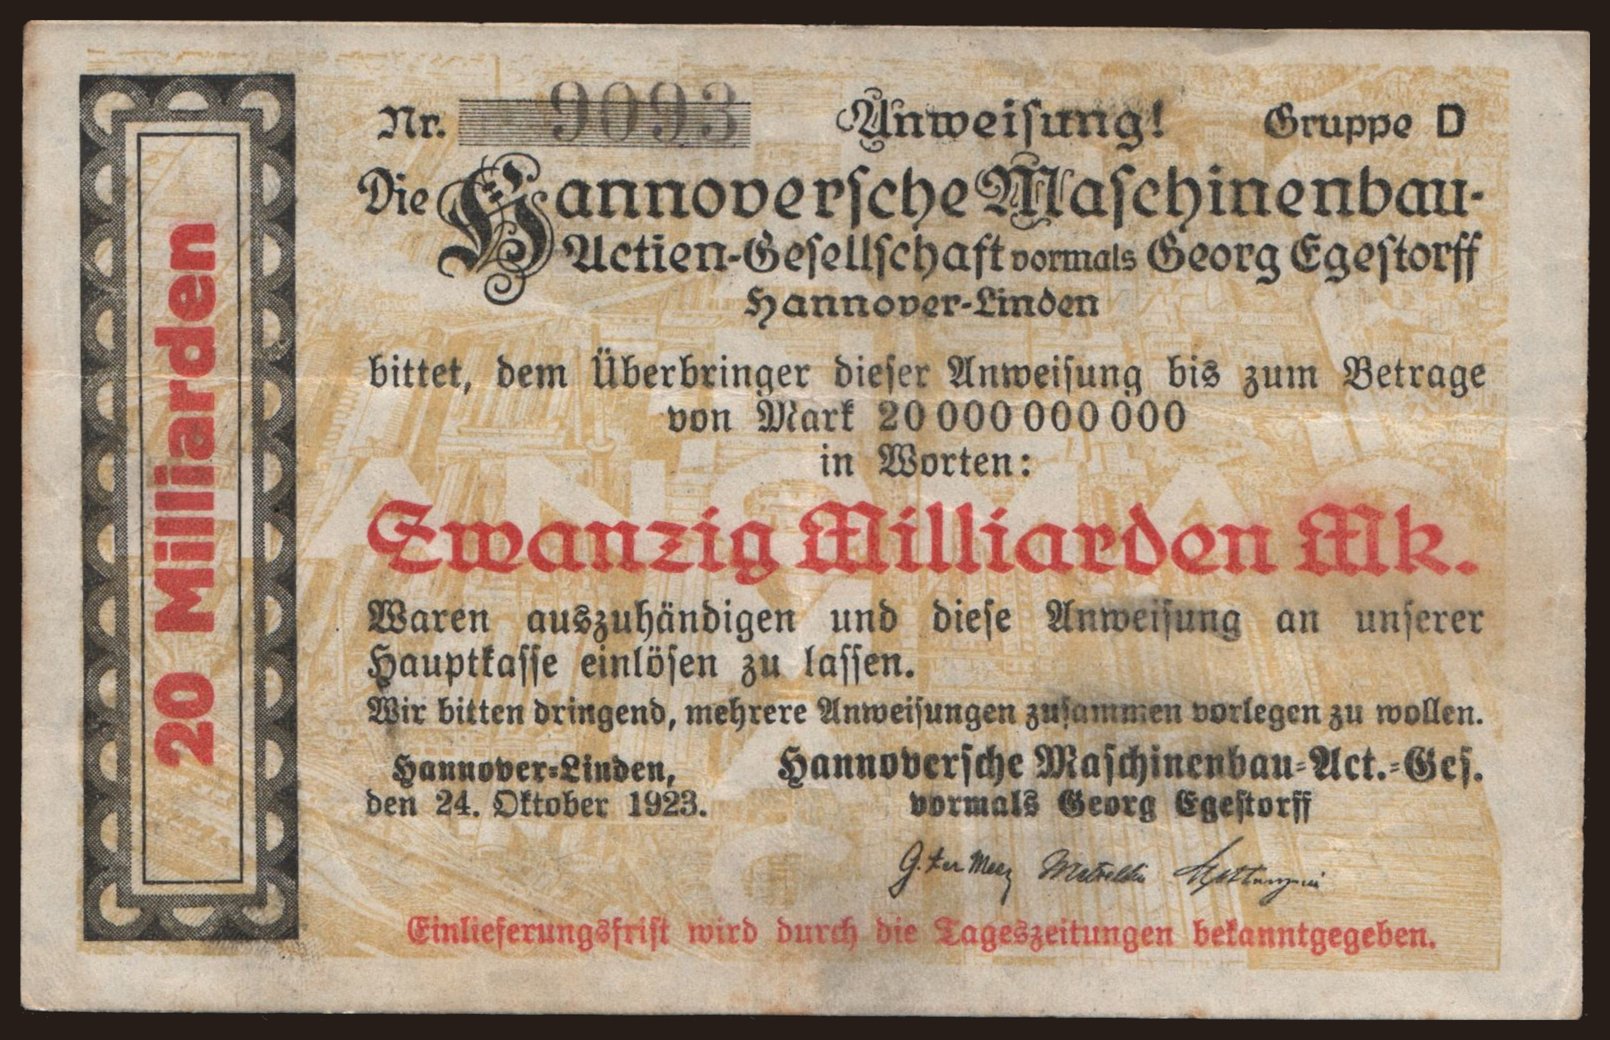 20 Milliarden
Nr. 9093 Anweisung! Gruppe D
Die Hannoversche Maschinenbau-
Actien-Gesellschaft vormals Georg Egestorff
Hannover-Linden
bittet, dem Überbringer dieser Anweisung bis zum Betrage
von Mark 20 000 000 000
in Worten:
Zwanzig Milliarden Mk.
Waren auszuhändigen und diese Anweisung an unserer
Hauptkasse einlösen zu lassen.
Wir bitten dringend, mehrere Anweisungen zusammen vorlegen zu wollen.
Hannover-Linden,
den 24. Oktober 1923.
Hannoversche Maschinenbau-Act.-Ges.
vormals Georg Egestorff
Einlieferungsfrist wird durch die Tageszeitungen bekanntgegeben.